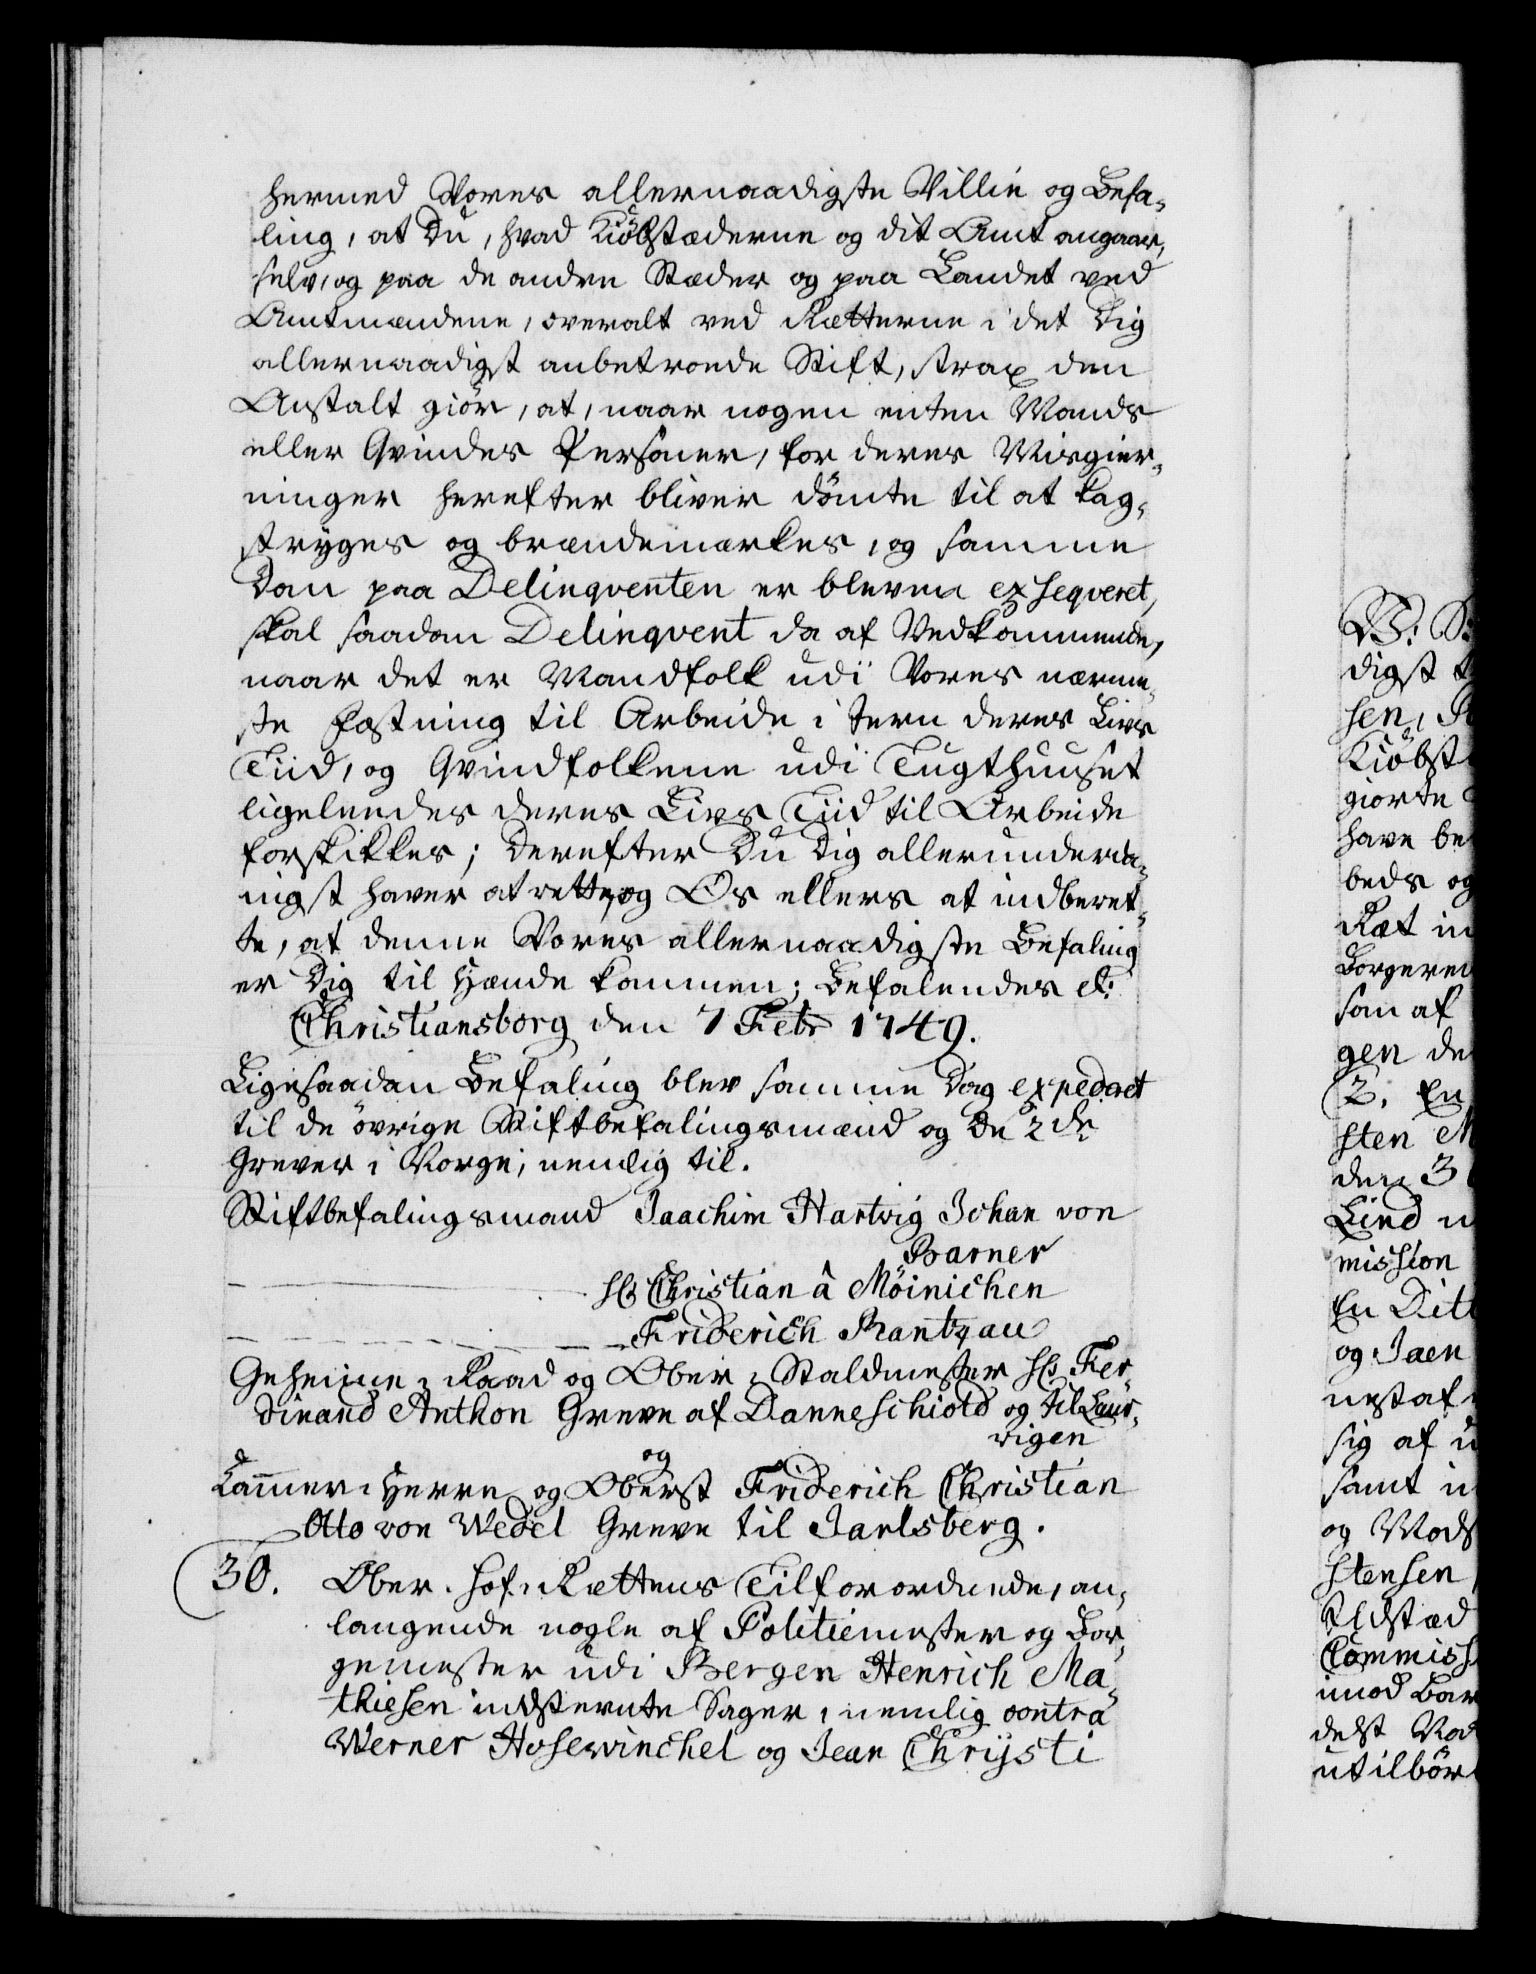 hermed Vores allernaadigste Villie og Befa-
ling, at Du, hvad Kiøbstæderne og dit Amt angaaer,
selv, og paa de andre Stæder og paa Landet ved
Amtmændene, overalt ved Rætterne i det Dig
allernaadigst anbetroede Stift, strax den
Anstalt giør, at, naar nogen enten Mands
eller Qvindes Personer, for deres Misgier-
ninger herefter bliver dømte til at kag-
stryges og brændemærkes, og samme
Dom paa Delinqventen er bleven exseqveret,
skal saadan Delinqvent da af Vedkommende,
naar det er Mandfolk udi Vores nærme-
ste Fæstning til Arbeide i Jern deres Livs
Tiid, og Qvindfolkene udi Tugthuuset
ligeleedes deres Livs Tiid til Arbeide
forskikkes; Derefter Du Dig allerunderda-
nigst haver at rette, og Os ellers at indberet-
te, at denne Vores allernaadigste Befaling
er Dig til Hænde kommen; Befalendes etc:
Christiansborg den 7 Febr 1749.
Ligesaadan Befaling blev samme Dag expederet
til de øvrige Stiftbefalingsmænd og De 2de
Grever i Norge, nemlig til.
Stiftbefalingsmand Joachim Hartvig Johan von
Barner
Hr Christian â Möinichen
Friderich Rantzau
Geheime-Raad og Ober-Staldmester Hr: Fer-
dinand Anthon Greve af Danneschiold og til Laur-
wigen
og
Cammer-Herre og Oberst Friderich Christian
Otto von Wedel Greve til Jarlsberg.
30. Ober-Hof-Rættens Tilforordnede, an-
langende nogle af Politiemester og Bor-
gemester udi Bergen Henrich Ma-
thiesen indstevnte Sager, nemlig contra
Werner Hosewinchel og Jean Chrijsti
W: S:
digst t
sen, P
Kiøbst
giorte
have be
beds og
Ræt in
Borgeren
som af
gen de
2. En
sten M
den 3
Lind u
mission
En Dit
og Jaen
nest af
sig af u
samt i
og Mods
stensen
Ildstæd
Commiss
imod Bar
delst Vor
utilbør